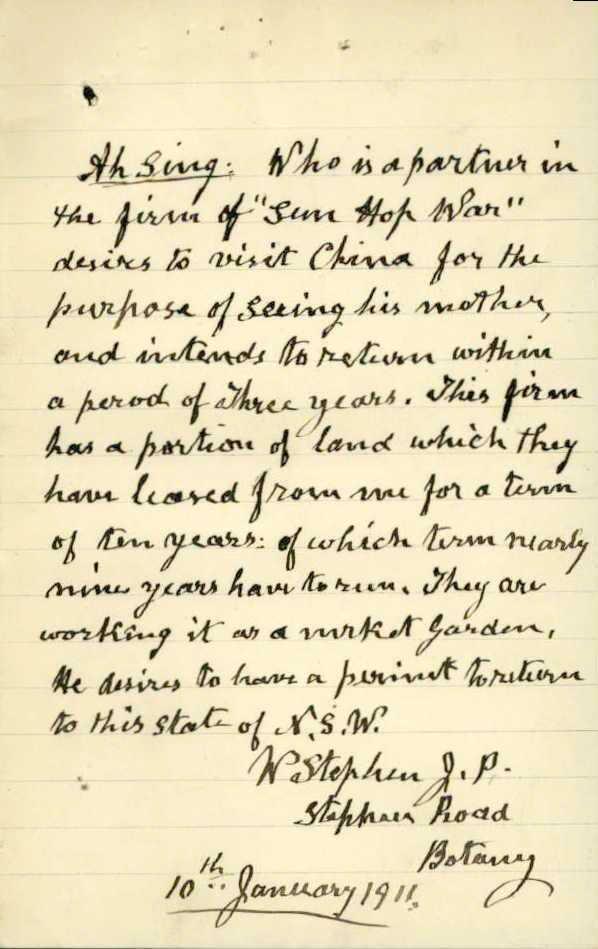 Ah Sing: Who is a partner in
the firm of "Sun Hop War"
desires to visit China for the
purpose of seeing his mother,
and intends to return within
a perod of three years. This firm
has a portion of land which they
have leased from me for a term
of ten years: of which term nearly
nine years have to run. They are
working it as a mrket Garden,
He desires to have a permit to return
to this state of N.S.W.
W Stephen J.P.
Stephen Road
Botany
10th January 1911.